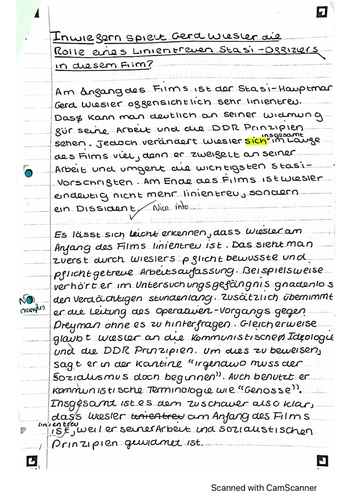 Inwiefern spielt Gerd Wiesler die
Rolle eines linientreuen Stasi-Offiziers
in diesem Film?
Am Anfang des Films ist der Stasi-Hauptmar
Gerd Wiesler offensichtlich sehr linientreu.
Dass kann man deutlich an seiner widmung
für seine Arbeit und die DDR Prinzipien
insgesamt
sehen. Jedoch verändert Wiesler sich im Laufe
des Films viel, denn er zweifelt an seiner
Arbeit und umgeht die wichtigsten Stasi-
Vorschriften. Am Ende des Films ist Wiesler
eindeutig nicht mehr linientreu, sondern
ein Dissident. Nice intro
Es lässt sich leicht erkennen, dass Wiesler am
Anfang des Films linientreu ist. Das sieht man
zuerst durch Wieslers pflichtbewusste und
pflichtgetreue Arbeitsauffassung. Beispielsweise
verhört er im Untersuchungsgefängnis gnadenlos
den Verdächtigen stundenlang. Zusätzlich übernimmt
er die Leitung des Operativen-Vorgangs gegen
Dreyman ohne es zu hinterfragen. Gleicherweise
glaubt Wiesler an die Kommunistische Ideologie
und die DDR Prinzipien. Um dies zu beweisen,
sagt er in der Kantine "irgendwo muss der
Sozialismus doch beginnen". Auch benutzt er
Kommunistische Terminologie wie "Genosse".
Insgesamt ist es dem Zuschauer also klar,
dass Wiesler linientreu am Anfang des Films
linientreu
ist, weil er seiner Arbeit und Sozialistischen
Prinzipien gewidmet ist.
Scanned with CamScanner